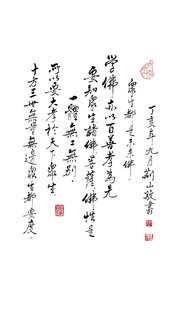 眾生都是未來佛
學佛亦以百善孝為先
要知眾生諸佛菩薩佛性是
一體無二無別
所以要大孝於天下眾生
十方三世無量無邊眾生都要度
丁亥年九月
山
書